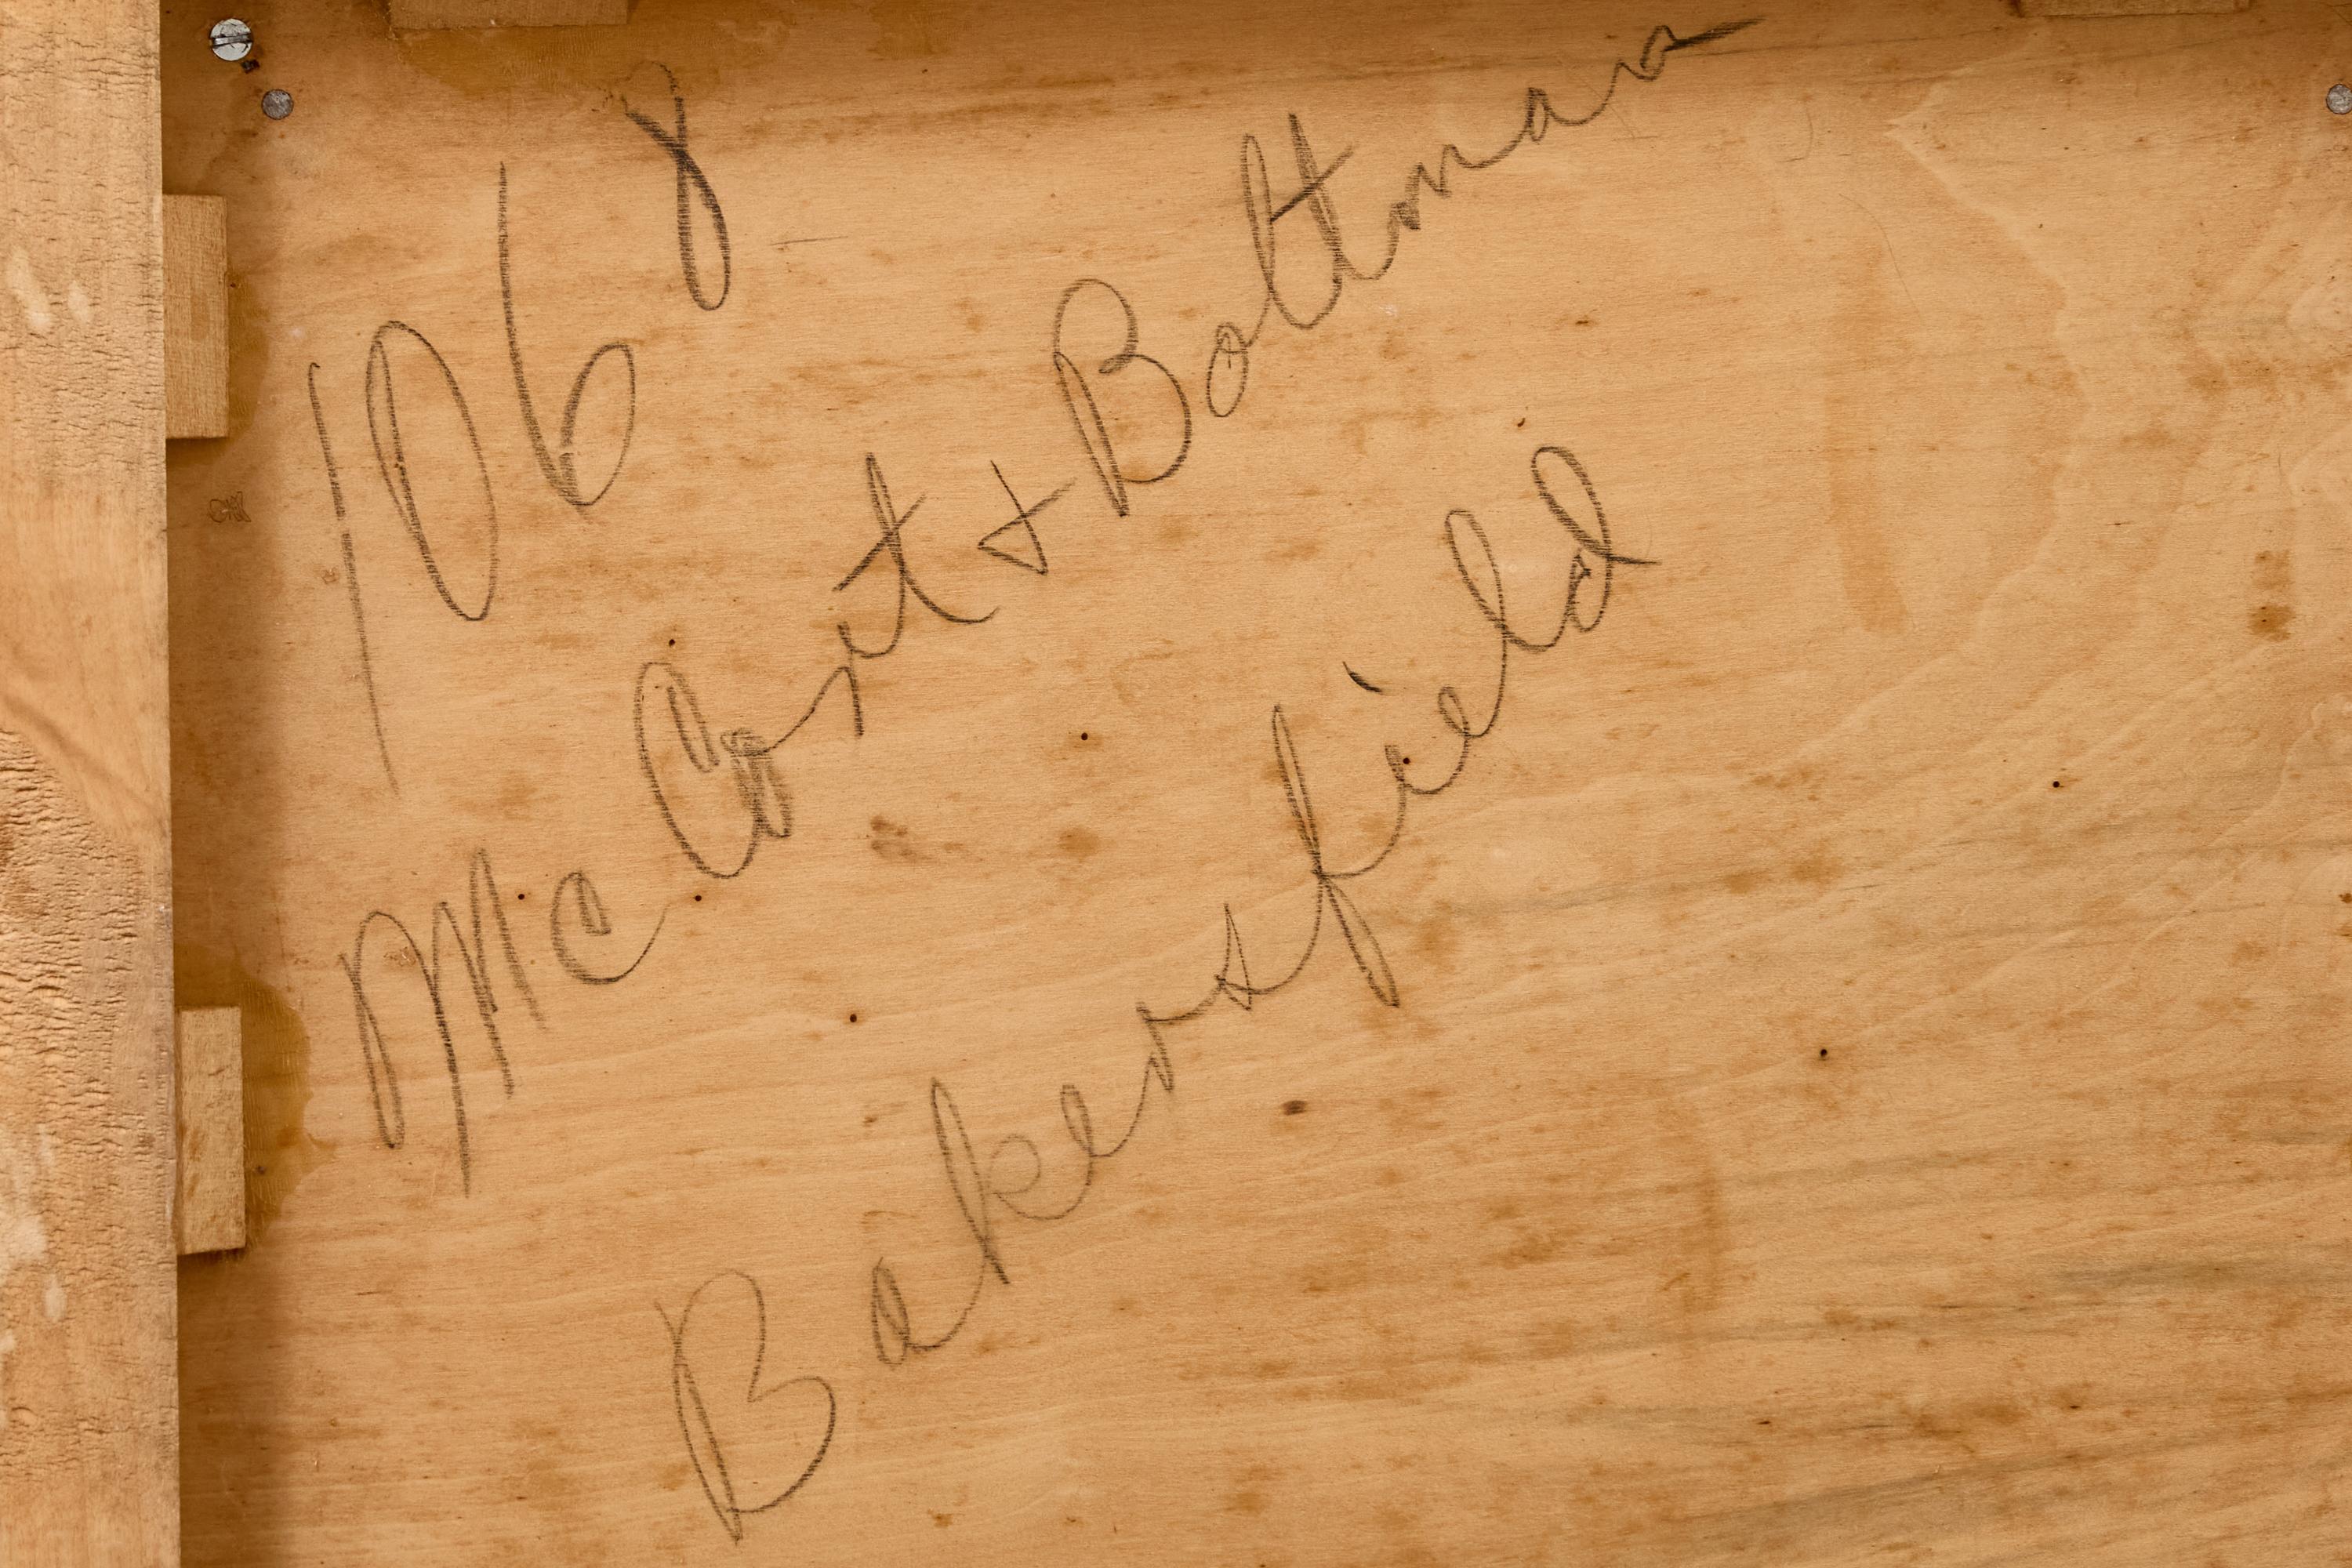 1068
McCort + Bottman
Bakersfield